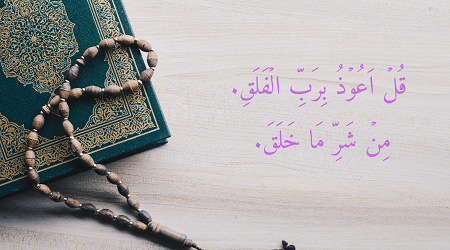 قُلۡ اَعُوۡذُ بِرَبِّ الۡفَلَقِۙ.
مِنۡ شَرِّ مَا خَلَقَۙ.